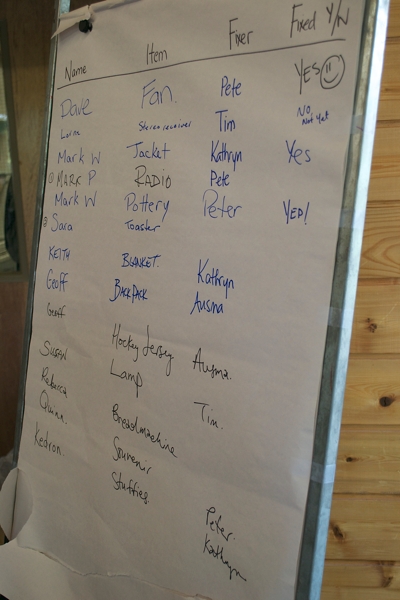 Name Item Fixer Fixed Y/N
Dave Fan. Pete YES
Lorna Stereo receiver Tim No, Not yet
Mark W Jacket Kathryn Yes
MARK P RADIO Pete
Mark W Pottery Peter YEP!
Sara Toaster
KEITH BLANKET. Kathryn
Geoff BACKPACK Ausma
Geoff Hockey Jersey Ausma.
Susan Lamp
Rebecca Breadmachine Tim.
Quinn. Souvenir
Kedron. Stuffies Peter.
Kathryn